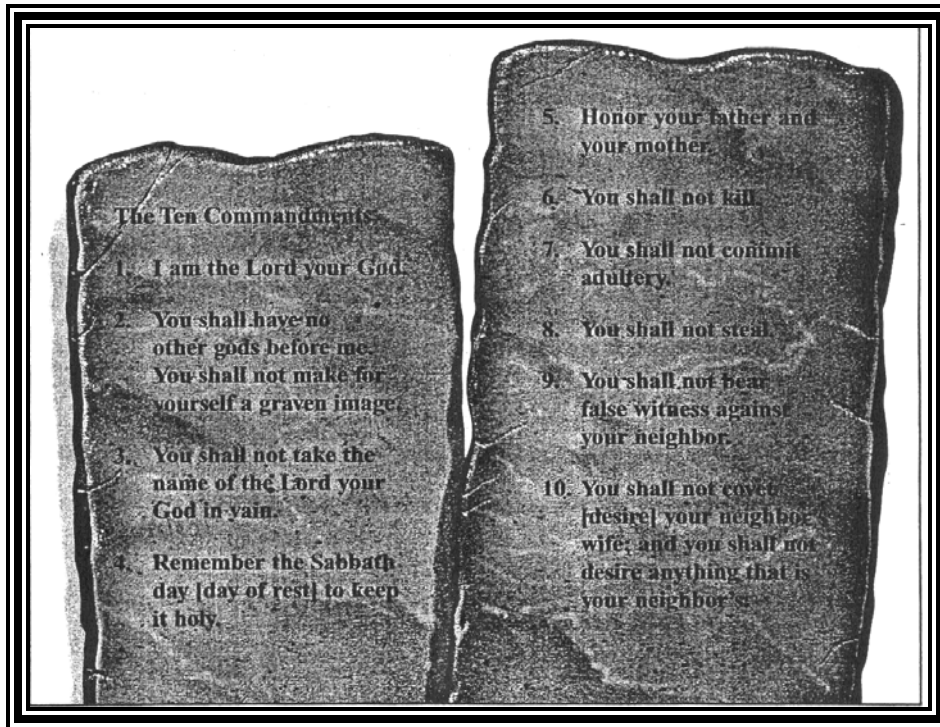 The Ten Commandments
1. I am the Lord your God.
2. You shall have no
other gods before me.
You shall not make for
yourself a graven image.
3. You shall not take the
name of the Lord your
God in vain.
4. Remember the Sabbath
day [day of rest] to keep
it holy.
5. Honor your father and
your mother.
6. You shall not kill.
7. You shall not commit
adultery.
8. You shall not steal.
9. You shall not bear
false witness against
your neighbor.
10. You shall not covet
[desire] your neighbor
wife; and you shall not
desire anything that is
your neighbor's.